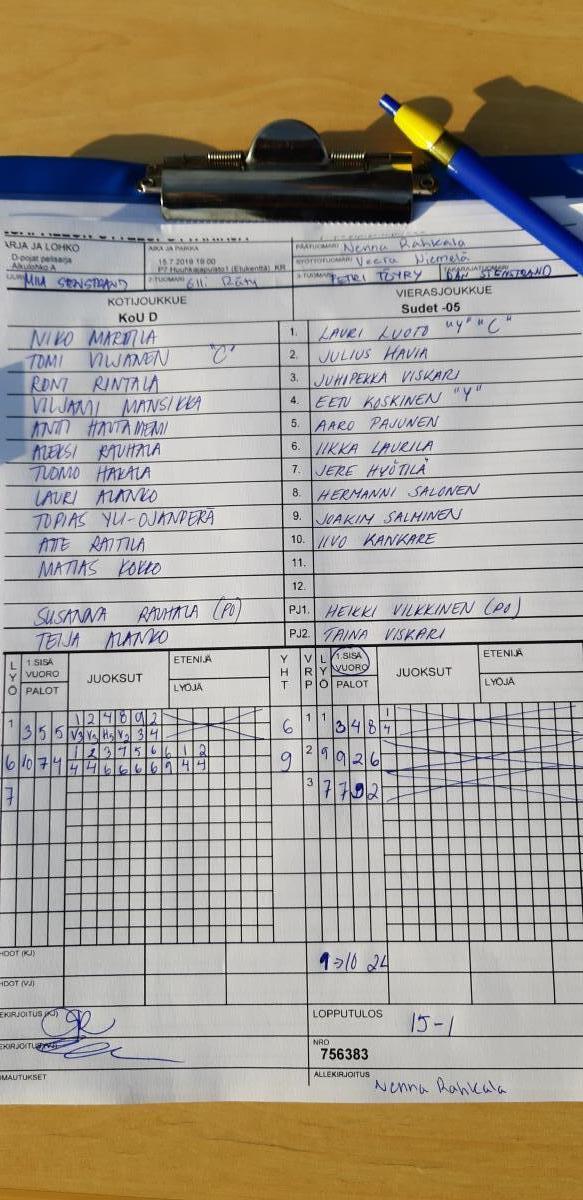 ARJA JA LOHKO
D-pojat pelisarja
Alkulohko A
AIKA JA PAIKKA
15.7.2019 18:00
P7 Huuhkajapuisto1 (Etukenttä) KR
PÄÄTUOMARI Nenna Rahkala
SYÖTTÖTUOMARI Veera Niemelä
2-TUOMARI Elli Räty
3-TUOMARI PETRI TÖYRY
KOTIJOUKKUE
KoU D
VIERASJOUKKUE
Sudet -05
NIKO MARTTILA 1. LAURI LUOTO "Y" "C"
TOMI VILJANEN "C" 2. JULIUS HAVIA
RONI RINTALA 3. JUHIPEKKA VISKARI
VILJAMI MANSIKKA 4. EETU KOSKINEN "Y"
ANTTI HAUTANIEMI 5. AARO PAJUNEN
ALEKSI RAUHALA 6. IIKKA LAURILA
TUOMO HAKALA 7. JERE HYÖTILÄ
LAURI ALANKO 8. HERMANNI SALONEN
TOPIAS YLI-OJANPERÄ 9. JOAKIM SALMINEN
ATTE RAITILA 10. IIVO KANKARE
MATIAS KOKKO 11.
12.
SUSANNA RAUHALA (PO) PJ1. HEIKKI VILKKINEN (PO)
TEIJA ALANKO PJ2. TAINA VISKARI
LYÖ 1.SISÄ VUORO PALOT JUOKSUT ETENIJÄ LYÖJÄ YHT VRP LYÖ 1.SISÄ VUORO PALOT JUOKSUT ETENIJÄ LYÖJÄ
1 2 4 8 9 2 1
1 3 5 5 V3 V2 H2 V2 3 4 6 1 1 3 4 8 4
1 2 3 7 5 6 6 1 2
6 10 7 4 4 4 6 6 6 6 9 4 4 9 2 9 9 2 6
7 3 7 7 9 2
HDOT (KJ) 9->10 2L
HDOT (VJ)
EKIRJOITUS (KJ)
LOPPUTULOS 15-1
NRO
756383
OMAUTUKSET
ALLEKIRJOITUS
Nenna Rahkala